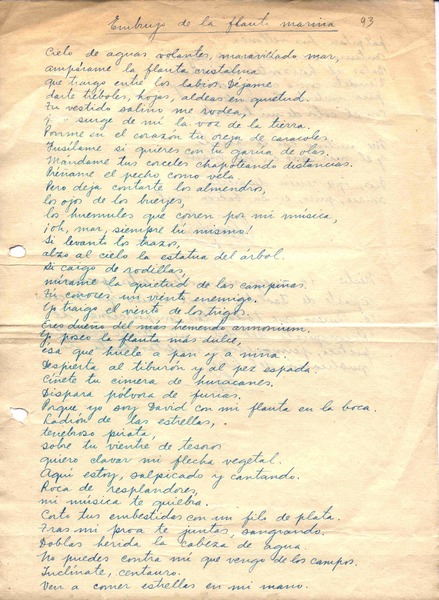 Embrujo de la flauta marina
93
Cielo de aguas volantes, maravillado mar,
ampárame la flauta cristalina
que traigo entre los labios. Déjame
darte tréboles, hojas, aldeas en quietud.
Tu vestido salino me rodea,
y surge de mí la voz de la tierra.
Ponme en el corazón tu oreja de caracoles.
Fusílame si quieres con tu garúa de olas.
Mándame tus corceles chapoteando distancias.
Préñame el pecho como vela.
Pero deja contarte los almendros,
los ojos de los bueyes,
los huemules que corren por mi música,
¡oh, mar, siempre tú mismo!
Si levanto los brazos,
alzo al cielo la estatua del árbol.
Si caigo de rodillas,
mírame la quietud de las campiñas.
Tú conoces un viento enemigo.
Yo traigo el viento de los trigos.
Eres dueño del más tremendo armonium.
Yo poseo la flauta más dulce,
esa que huele a pan y a niña.
Despierta al tiburón y al pez espada
Cíñete tu cimera de huracanes.
Dispara pólvora de furias.
Porque yo soy David con mi flauta en la boca.
Ladrón de las estrellas,
tenebroso pirata,
sobre tu vientre de tesoros
quiero clavar mi flecha vegetal.
Aquí estoy, salpicado y cantando.
Roca de resplandores,
mi música te quiebra.
Corto tus embestidas con un filo de plata.
Tras mi proa te juntas, sangrando.
Doblas herida la cabeza de agua.
No puedes contra mí que vengo de los campos.
Inclínate, centauro.
Ven a comer estrellas en mi mano.